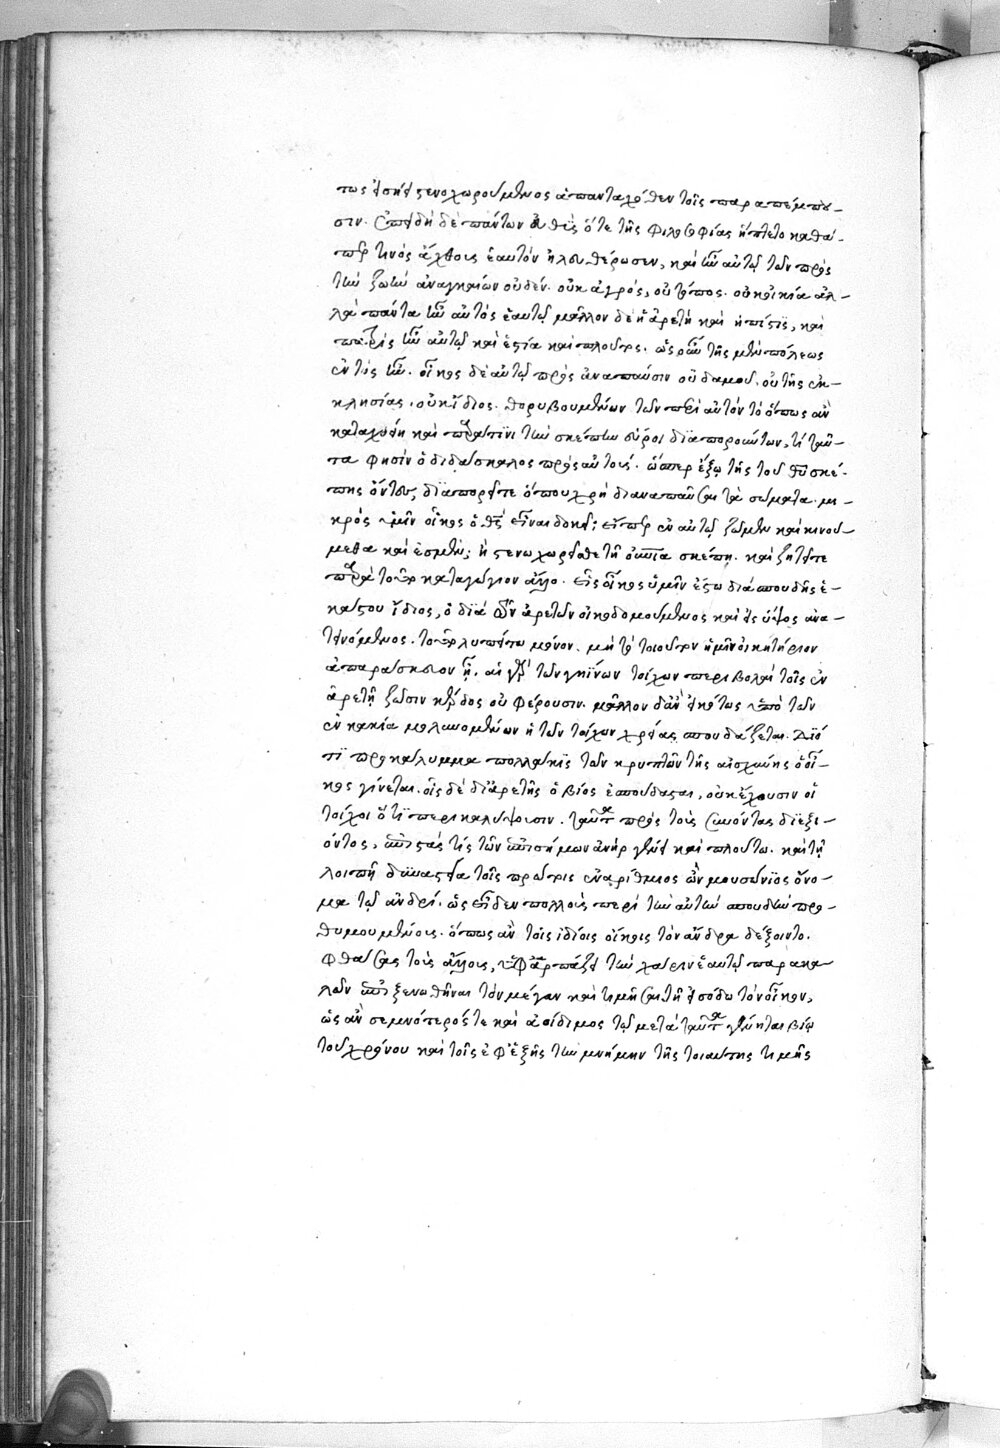 τως ᾔει στενοχωρούμενος ἁπανταχόθεν τοῖς παραπέμπου-
σιν. ἐπειδὴ δὲ πάντων εὐθὺς ὅτε τῆς φιλοσοφίας ἥπτετο καθά-
περ τινὸς ἄχθους ἑαυτὸν ἠλευθέρωσεν, καὶ ἦν αὐτῷ τῶν πρὸς
τὴν ζωὴν ἀναγκαίων οὐδέν. οὐκ ἀγρός, οὐ τόπος. οὐκ οἰκία ἀλ-
λὰ πάντα ἦν αὐτὸς ἑαυτῷ μᾶλλον δὲ ἡ ἀρετὴ καὶ ἡ πίστις, καὶ
πατρὶς ἦν αὐτῷ καὶ ἑστία καὶ πλοῦτος. ὡς οὖν τῆς μὲν πόλεως
ἐντὸς ἦν. οἶκος δὲ αὐτῷ πρὸς ἀνάπαυσιν οὐδαμοῦ. οὐ τῆς ἐκ-
κλησίας. οὐκ ἴδιος. θορυβουμένων τῶν περὶ αὐτὸν τὸ ὅπως ἂν
καταχθείη καὶ παρά τινι τὴν σκέπην εὕροι διαπορούντων, τί ταῦ-
τα φησὶν ὁ διδάσκαλος πρὸς αὐτούς. ὥσπερ ἔξω τῆς τοῦ θῡ σκέ-
πης ὄντες, διαπορεῖτε ὅπου χρὴ διαναπαῦσαι τὰ σώματα. μι-
κρὸς ὑμῖν οἶκος ὁ θς̄ εἶναι δοκεῖ; εἴπερ ἐν αὐτῷ ζῶμεν καὶ κινού-
μεθα καὶ ἐσμέν; ἢ στενοχωρεῖσθε τῇ οὐνία σκέπῃ. καὶ ζητεῖτε
παρὰ τοῦτον καταγώγιον ἄλλο. εἷς οἶκος ὑμῖν ἔστω διὰ σπουδῆς ἑ-
κάστου ἴδιος, ὁ διὰ τῶν ἀρετῶν οἰκοδομούμενος καὶ εἰς ὕψος ἀνα-
τεινόμενος. τοῦτο λυπείτω μόνον. μὴ τὸ τοιοῦτον ἡμῖν οἰκητήριον
ἀπαράσκευον ᾖ. αἱ γὰρ τῶν γηΐνων τοίχων περιβολαὶ τοῖς ἐν
ἀρετῇ ζῶσιν κέρδος οὐ φέρουσιν. μᾶλλον δ' ἂν εἰκότως ὑπὸ τῶν
ἐν κακίᾳ μολυνομένων ἡ τῶν τοίχων χρεία σπουδάζεται. διό-
τι προκάλυμμα πολλάκις τῶν κρυπτῶν τῆς αἰσχύνης ὁ οἶ-
κος γίνεται. οἷς δὲ δι' ἀρετῆς ὁ βίος ἐσπούδασται, οὐκ ἔχουσιν οἱ
τοῖχοι ὅτι περικαλύψουσιν. ταῦτα πρὸς τοὺς συνόντας διεξι-
όντος, ἐπιστάς τις τῶν ἐπισήμων ἀνὴρ γένει καὶ πλούτῳ. καὶ τῇ
λοιπῇ δυναστείᾳ τοῖς πρώτοις ἐναρίθμιος ὢν μουσώνιος ὄνο-
μα τῷ ἀνδρί. ὡς εἶδεν πολλοὺς περὶ τὴν αὐτὴν σπουδὴν προ-
θυμουμένους. ὅπως ἂν τοῖς ἰδίοις οἴκοις τὸν ἄνδρα δέξοιντο.
φθάσας τοὺς ἄλλους, προαρπάζει τὴν χάριν ἑαυτῷ παρακα-
λῶν ἐπιξενωθῆναι τὸν μέγαν καὶ τιμῆσαι τῇ εἰσόδῳ τὸν οἶκον,
ὡς ἂν σεμνότερός τε καὶ ἀοίδιμος τῷ μετὰ ταῦτα γένηται βίῳ
τοῦ χρόνου καὶ τοῖς ἐφεξῆς τὴν μνήμην τῆς τοιαύτης τιμῆς